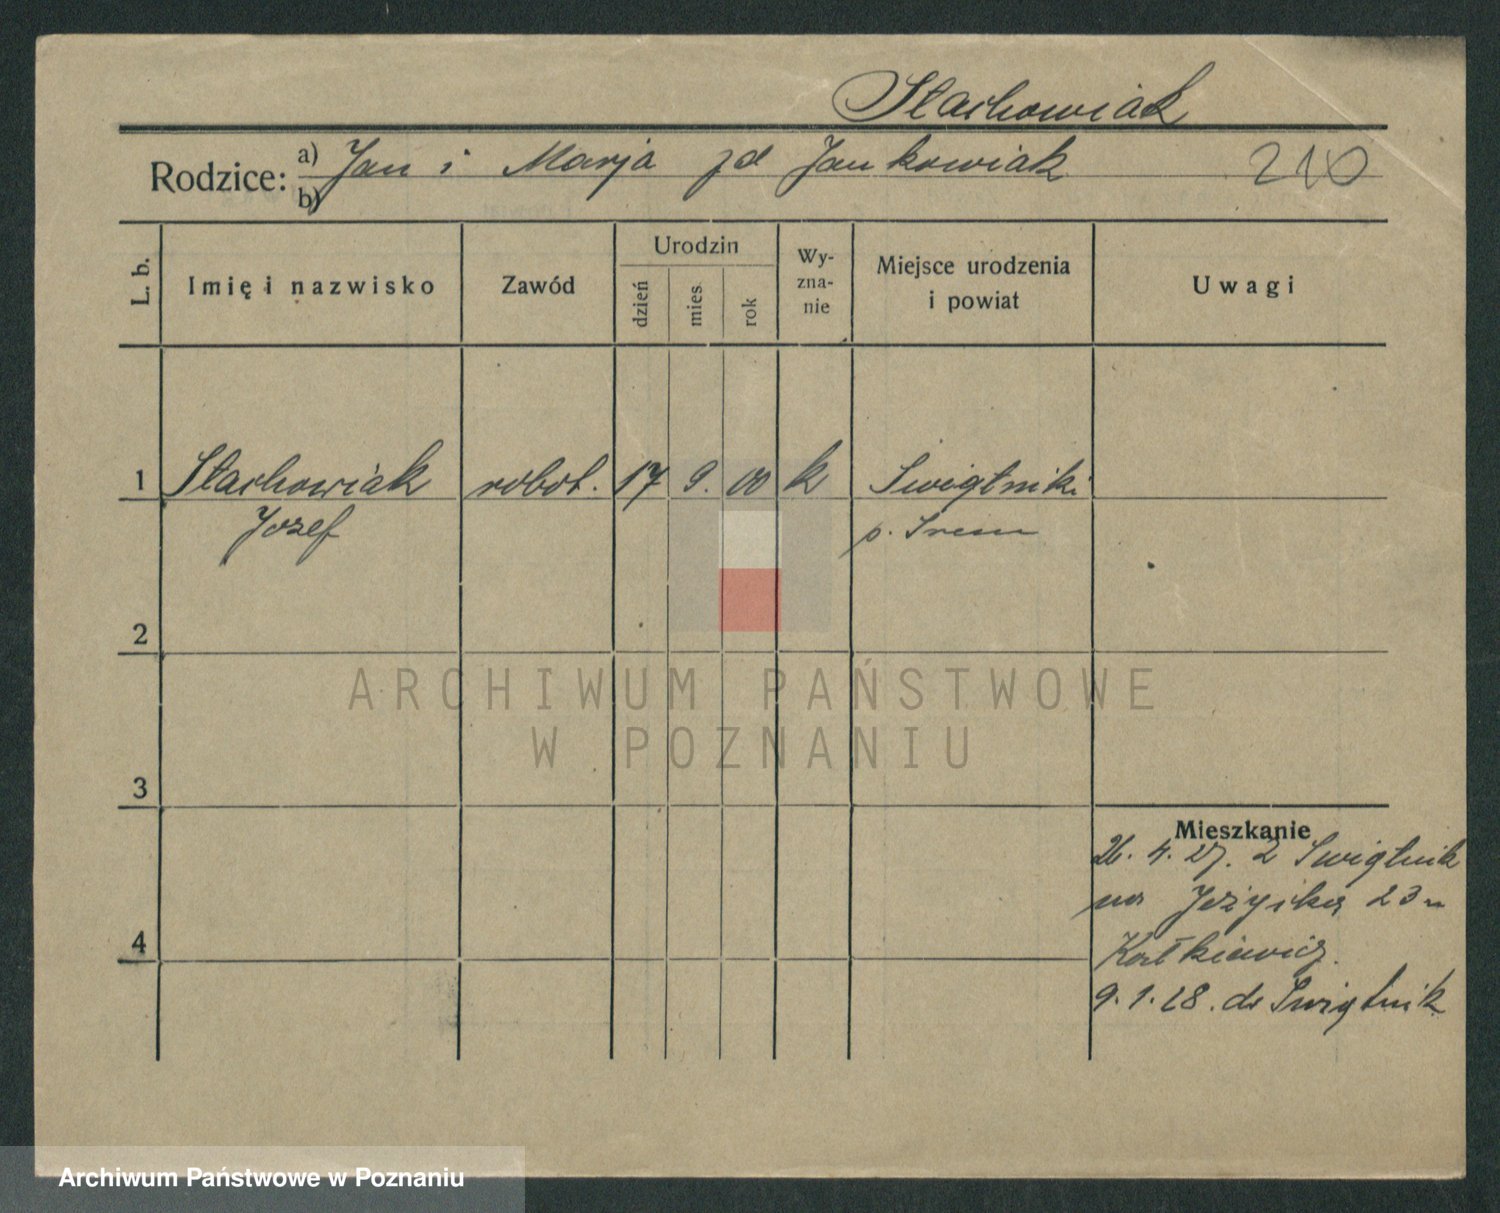 Stachowiak
Rodzice: a) Jan i Marja zd Jankowiak 210
b)
L. b. Imię i nazwisko Zawód Urodzin dzień mies. rok Wy-zna-nie Miejsce urodzenia i powiat Uwagi
1 Stachowiak robot. 17 9. 00 k Swiątniki
Jozef p. Srem
2
3
Mieszkanie
26. 4. 27. z Swiątnik
na Jeżycka 23
4
9. 1. 28. do Swiątnik
ARCHIWUM PAŃSTWOWE
W POZNANIU
Archiwum Państwowe w Poznaniu